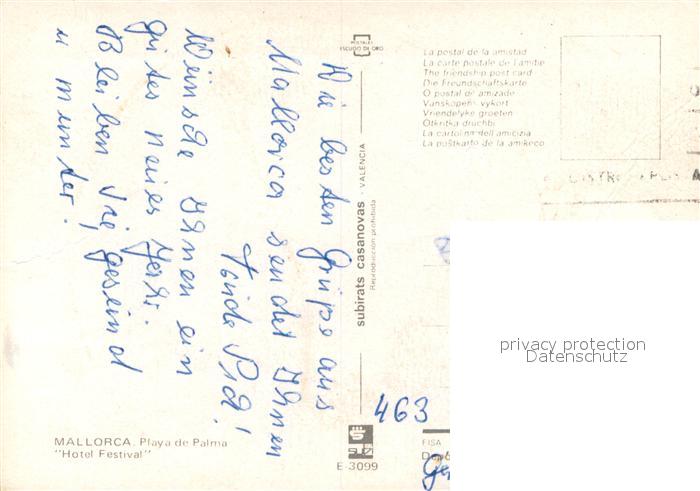 Die besten Grüße aus
Mallorca sendet Ihnen
Wünsche Ihnen ein
gutes neues Jahr.
Bleiben Sie gesund
u munter!
POSTALES
ESCUDO DE ORO
La postal de la amistad
La carte postale de l'amitie
The friendship post card
Die Freundschaftskarte
O postal de amizade
Vanskopens vykort
Vriendelyke groeten
Otkritka druchbi
La cartolina dell amicizia
La poŝtkarto de la amikeco
subirats casanovas - VALENCIA
Reproducción prohibida
privacy protection
Datenschutz
463
MALLORCA. Playa de Palma
"Hotel Festival"
E-3099
FISA